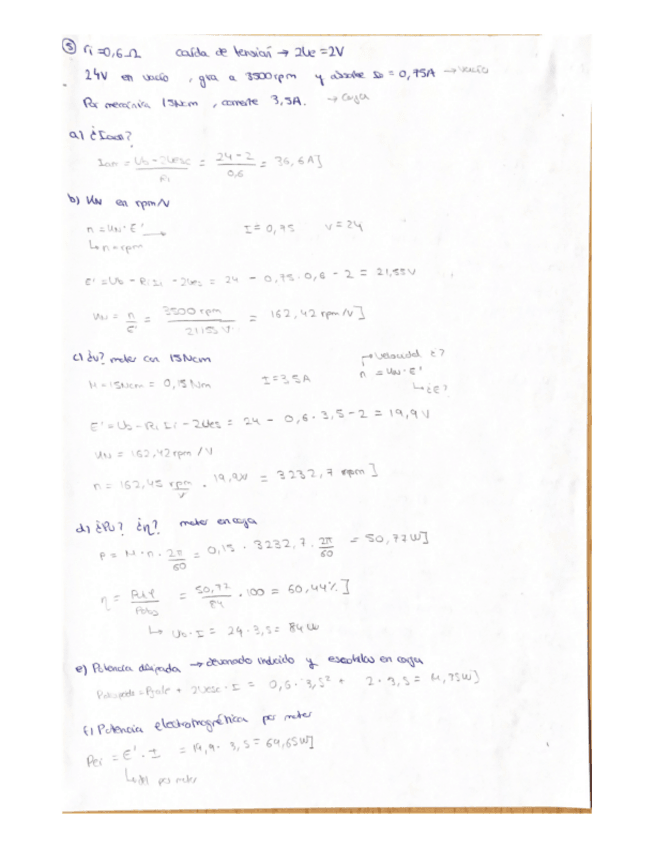 ⑤ ri=0,6Ω caída de tensión → 2Ue=2V
24V en vacío, gira a 3500rpm y absorbe Io = 0,75A → vacío
Par mecánica 15Ncm, corriente 3,5A. → carga
a) ¿Iarr?
Iarr = Ub-2Uesc / Ri = 24-2 / 0,6 = 36,6A]
b) KN en rpm/V
n = KN·E' → I=0,75 V=24
↳ n=rpm
E' = Ub - Ri Ii - 2Ues = 24 - 0,75·0,6 - 2 = 21,55V
KN = n / E' = 3500 rpm / 21,55 V = 162,42 rpm/V]
c) ¿v? motor con 15Ncm
→ velocidad ¿?
M=15Ncm = 0,15Nm I=3,5A n = KN·E'
↳ ¿E?
E' = Ub - Ri Ii - 2Ues = 24 - 0,6·3,5 - 2 = 19,9V
KN = 162,42 rpm/V
n = 162,45 rpm/V · 19,9V = 3232,7 rpm]
d) ¿Pu? ¿η? motor en carga
P = M·n·2π/60 = 0,15 · 3232,7 · 2π/60 = 50,77W]
η = Pútil / Pabs = 50,77 / 84 · 100 = 60,44%]
↳ Ub·I = 24·3,5 = 84W
e) Potencia disipada → devanado inducido y escobillas en carga
Pdisipada = Pjoule + 2Uesc·I = 0,6·3,5² + 2·3,5 = 14,35W]
f) Potencia electromagnética por motor
Pei = E'·I = 19,9·3,5 = 69,65W]
↳ del por motor